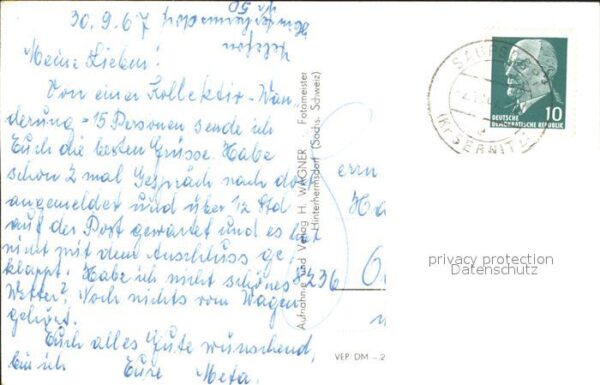 30.9.67
Telefon
Hinterhermsdorf
Nr 50
Meine Lieben!
Von einer Kollektiv-Wan
derung - 15 Personen sende ich
Euch die besten Grüsse. Habe
schon 2 mal Gespräch nach dort
angemeldet und über 1½ Std
auf der Post gewartet und es hat
nicht mit dem Anschluss ge,
klappt. Habe ich nicht schönes
Wetter? Noch nichts vom Wagen
gehört.
Euch alles Gute wünschend,
bin ich Eure Meta.
Aufnahme und Verlag H. WAGNER Fotomeister
Hinterhermsdorf (Sächs. Schweiz)
DEUTSCHE
DEMOKRATISCHE REPUBLIK
10
(Kr SEBNITZ)
errn
8236
privacy protection
Datenschutz
VEP DM -.2